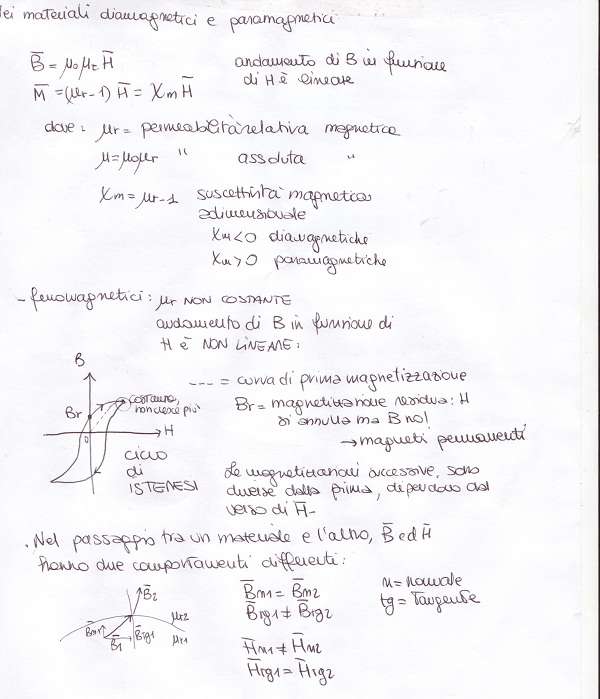 ei materiali diamagnetici e paramagnetici
B̅ = μ₀μr H̅ andamento di B in funzione
di H è lineare
M̅ = (μr-1) H̅ = Xm H̅
dove: μr = permeabilità relativa magnetica
μ = μ₀μr " assoluta "
Xm = μr-1 suscettività magnetica
adimensionale
Xm<0 diamagnetiche
Xm>0 paramagnetiche
- ferromagnetici: μr NON COSTANTE
andamento di B in funzione di
H è NON LINEARE:
B
--- = curva di prima magnetizzazione
costante, non cresce più
Br
Br = magnetizzazione residua: H
si annulla ma B no!
→ magneti permanenti
0
H
CICLO
DI
ISTERESI
Le magnetizzazioni successive, sono
diverse dalla prima, dipendono dal
verso di H̅-
. Nel passaggio tra un materiale e l'altro, B̅ ed H̅
hanno due comportamenti differenti:
B̅2
B̅n1
B̅1
B̅tg1
μr2
μr1
B̅n1 = B̅n2
B̅tg1 ≠ B̅tg2
H̅n1 ≠ H̅n2
H̅tg1 = H̅tg2
n = normale
tg = tangente